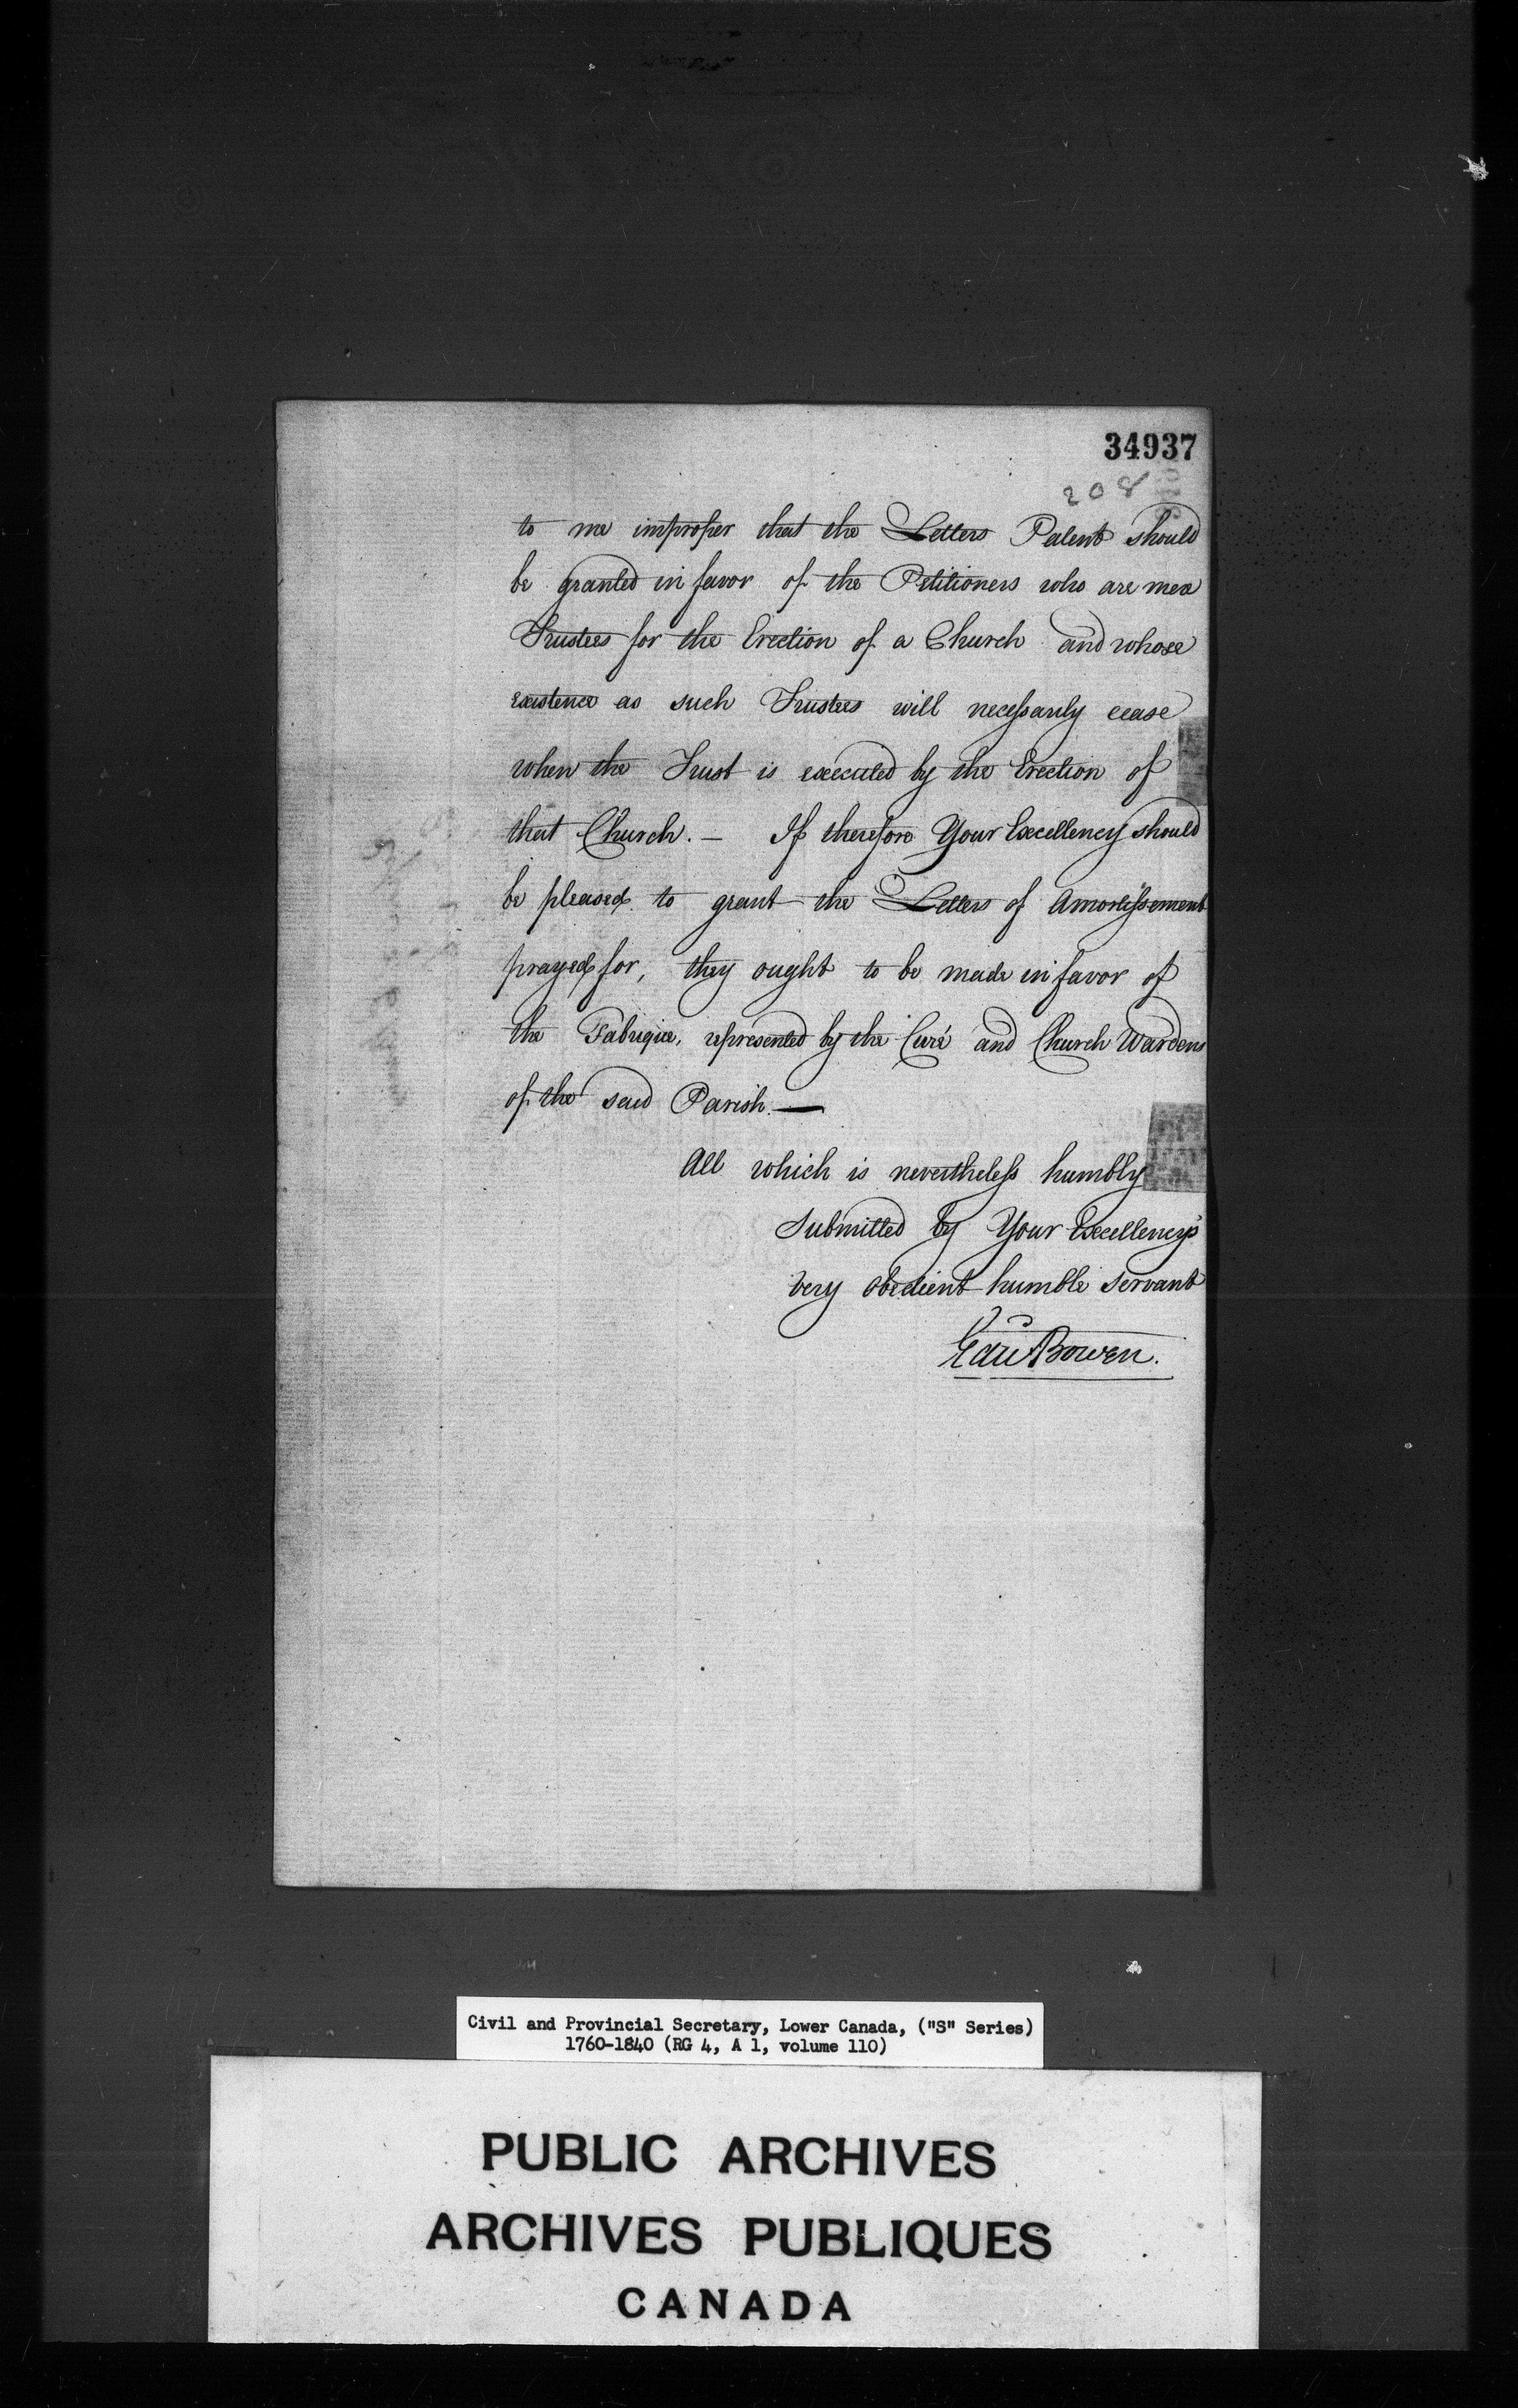 34937
208
to me improper that the Letters Patent should
be granted in favor of the Petitioners who are mere
Trustees for the Erection of a Church and whose
existence as such Trustees will necessarily cease
when the Trust is executed by the Erection of
that Church. — If therefore Your Excellency should
be pleased to grant the Letters of Amortissement
prayed for, they ought to be made in favor of
the Fabrique, represented by the Curé and Church Wardens
of the said Parish. —
All which is nevertheless humbly
Submitted by Your Excellency's
very obedient humble servant
Edw Bowen.
Civil and Provincial Secretary, Lower Canada, ("S" Series)
1760-1840 (RG 4, A 1, volume 110)
PUBLIC ARCHIVES
ARCHIVES PUBLIQUES
CANADA